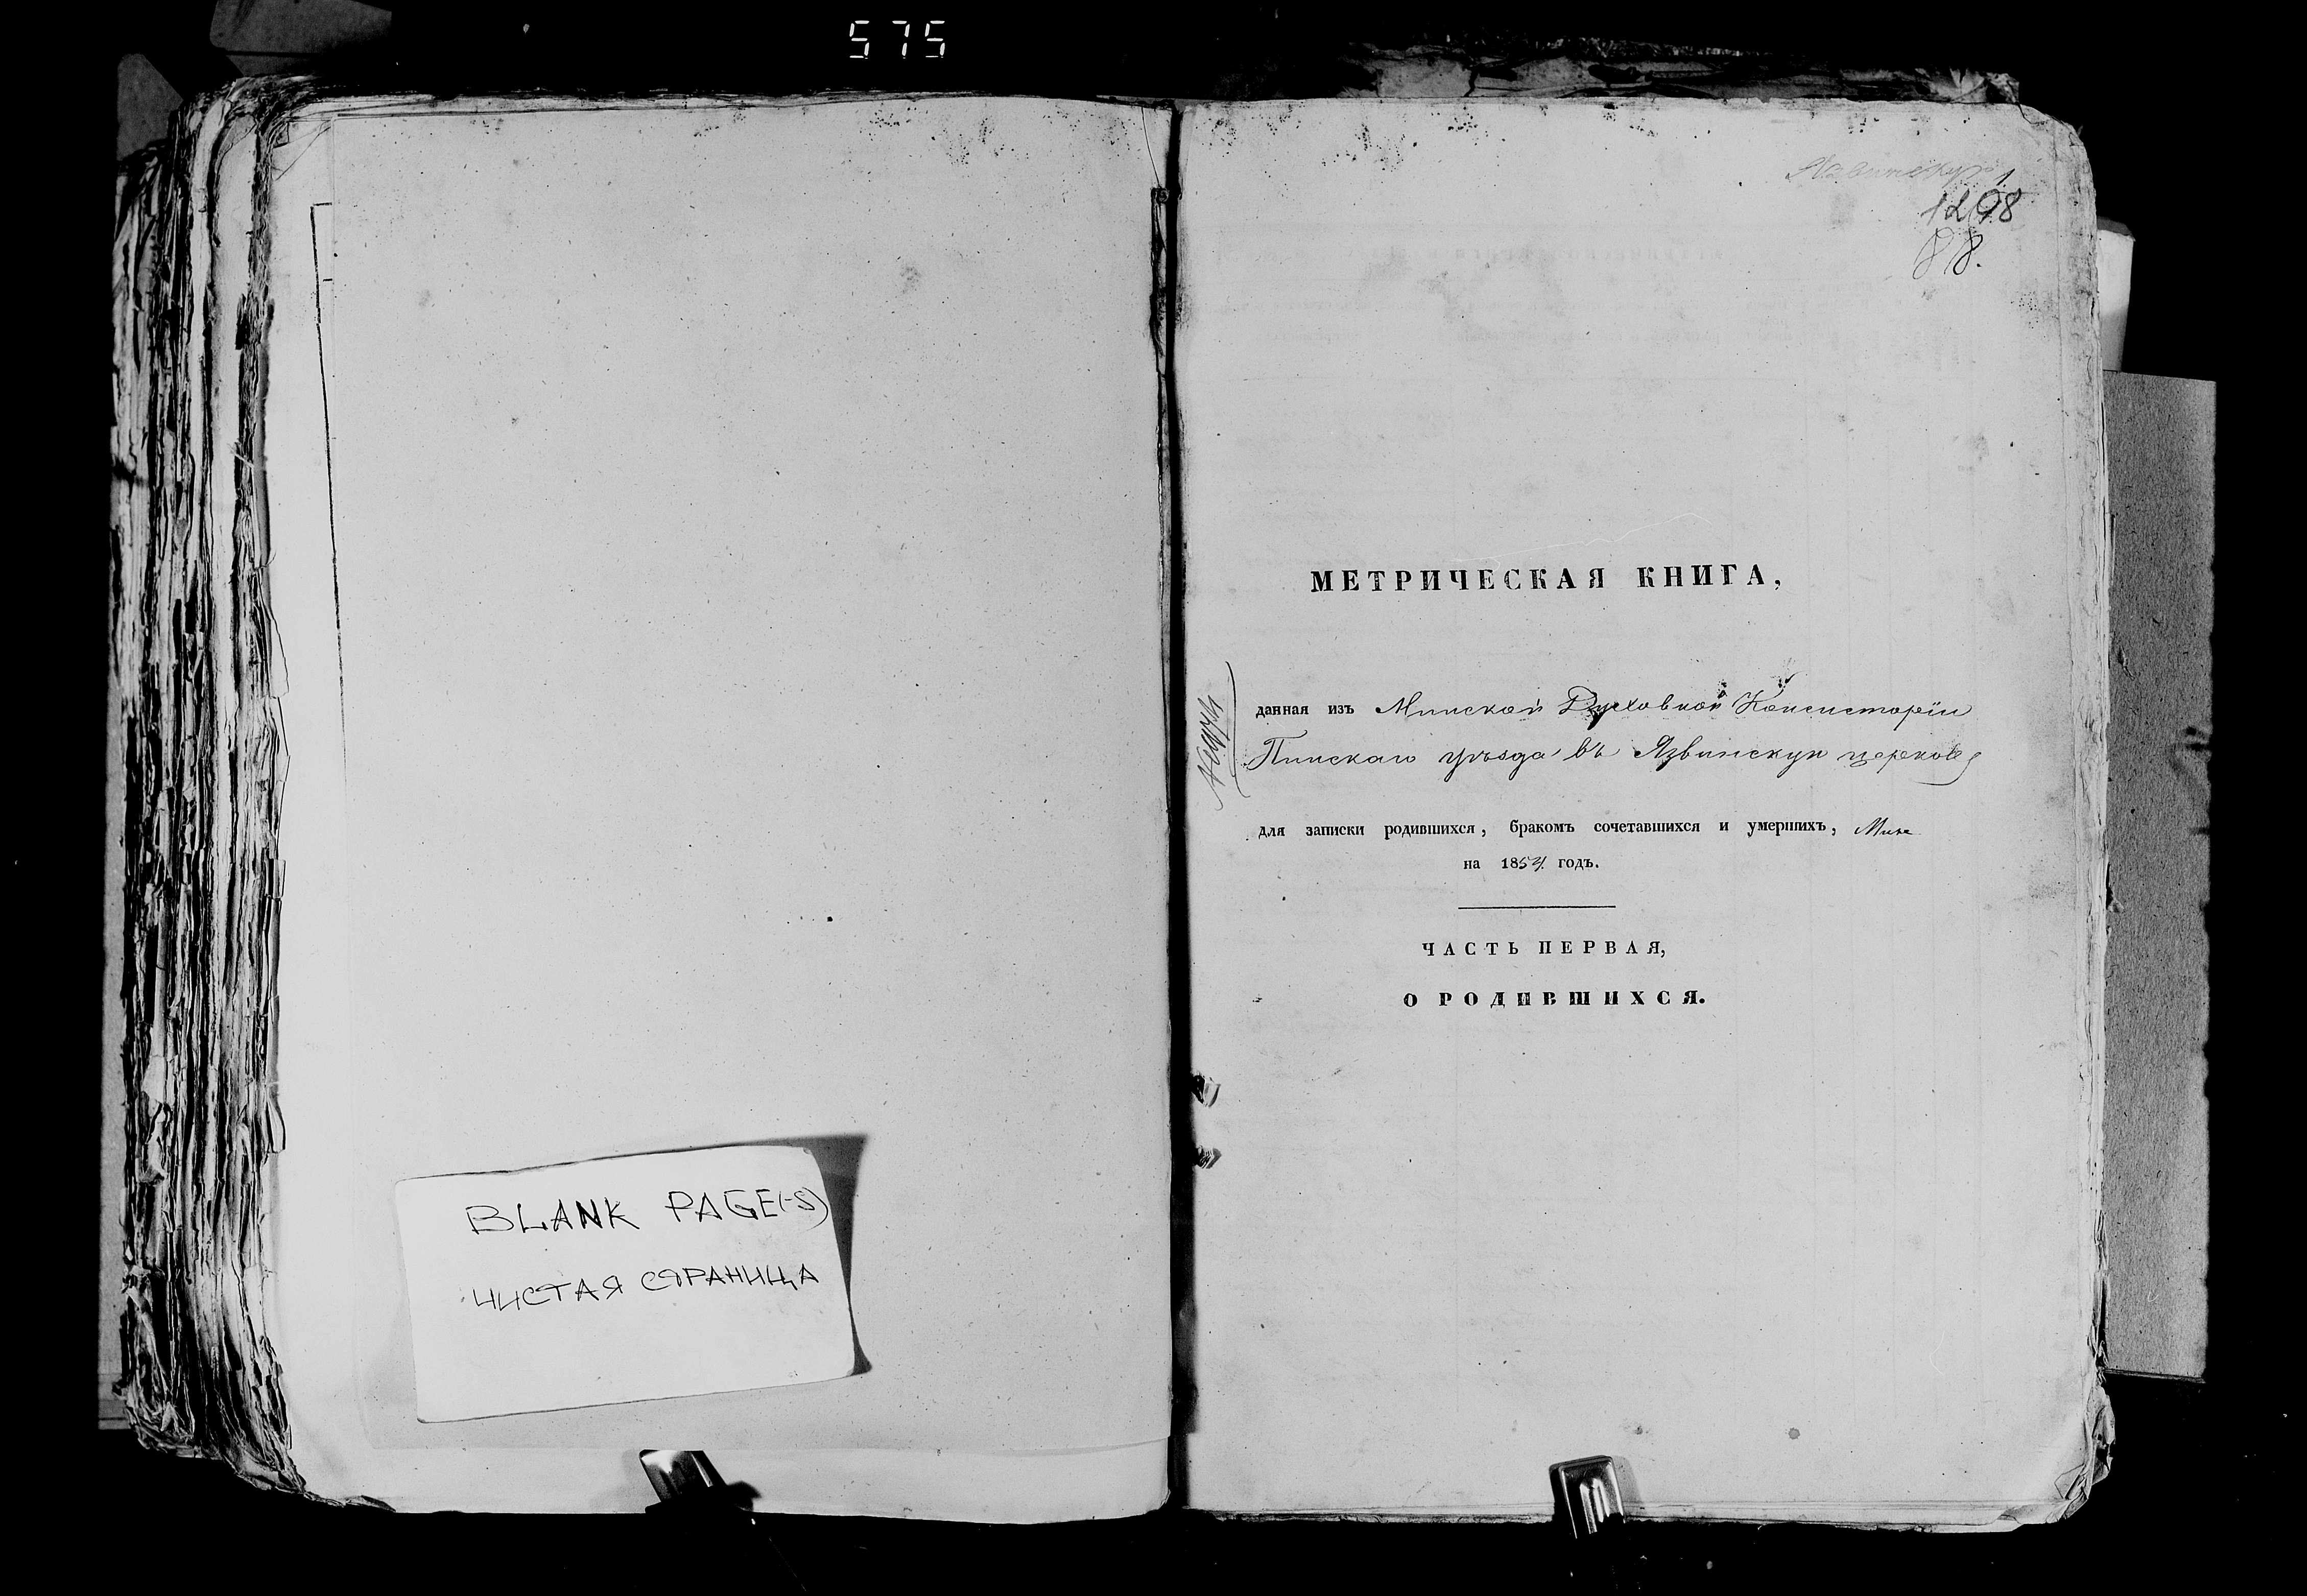 575
BLANK PAGE(-S)
ЧИСТАЯ СТРАНИЦА
Язвинскую 1.
1298
88.
МЕТРИЧЕСКАЯ КНИГА,
данная изъ Минской Духовной Консисторіи
Пинскаго уѣзда въ Язвинскую церковь
для записки родившихся, бракомъ сочетавшихся и умершихъ,
на 1854 годъ.
ЧАСТЬ ПЕРВАЯ,
О РОДИВШИХСЯ.